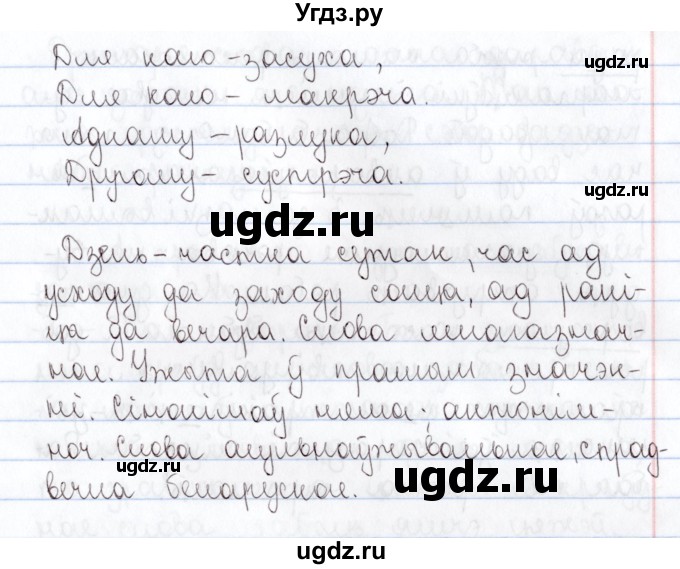 Угдз.ру
Для каго - засуха,
ugdz.ru
Для каго - макрэча.
ugdz.ru
Аднаму - разлука,
Другому - сустрэча.
ugdz.ru
ugdz.ru
Дзень - частка сутак, час ад
усходу да заходу сонца, ад рані-
ugdz.ru
цы да вечара. Слова мнагазнач-
нае. Ужыта ў прамым значэн-
ні. Сінонімаў няма, антонім -
ноч. Слова агульнаўжывальнае, спрад-
ugdz.ru
ugdz.ru
вечна беларускае.
ugdz.ru